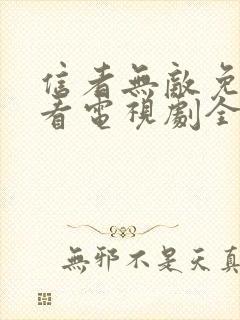 信者無敵免
看電視劇全
無邪不是天真